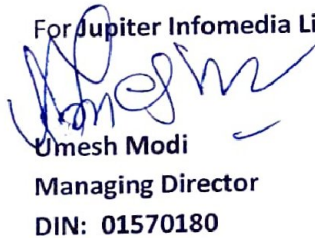 For Jupiter Infomedia Li
Umesh Modi
Managing Director
DIN: 01570180